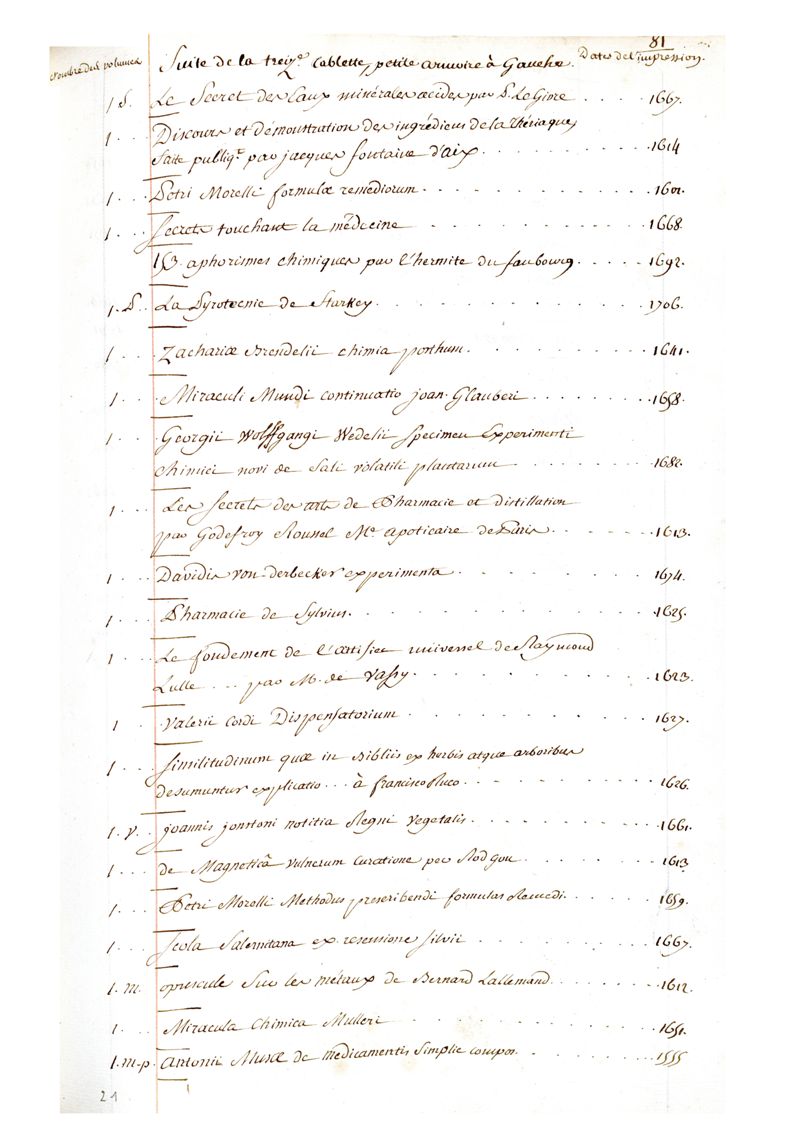 81
Nombre des volumes Suite de la treize. tablette, petite armoire à Gauche. Dates de l'impression.
1 d. Le Secret des Eaux minérales acides par P. Le Givre . . . . 1667.
1 . . . Discours et démonstration des ingrédiens de la Thériaque,
faite publiqe. par jacques fontaine d'aix . . . . 1614
1 . . . Petri Morelli formulæ remediorum . . . . 1601.
1 . . . Secrets touchant la médecine . . . . 1668.
153. aphorismes chimiques par l'hermite du faubourg . . . . 1692.
1. d. La Pyrotecnie de Starkey . . . . 1706.
1 . . . Zachariæ Brendelii chimia . . . . 1641.
1 . . . Miraculi Mundi continuatio joan. Glauberi . . . . 1658.
1 . . . Georgii Wolffgangi Wedelii specimen Experimenti
chimici novi de Sali volatili plantarum . . . . 1682.
1 . . . Les secrets des arts de Pharmacie et distillation
par Godefroy Roussel Me. apoticaire de Paris . . . . 1613.
1 . . . Davidis von-derbecker experimenta . . . . 1674.
1 . . . Pharmacie de Sylvius . . . . 1625.
1 . . . Le fondement de l'artifice universel de Raymond
Lulle . . . par M. de Vassy . . . . 1623.
1 . . Valerii Cordi Dispensatorium . . . . 1627.
1 . . . Similitudinum quæ in Bibliis ex herbis atque arboribus
desumuntur explicatio . . . à francisco Ruco . . . . 1626.
1. v. . joannis jonstoni notitia Regni Vegetalis . . . . 1661.
1 . . . de Magneticâ Vulnerum Curatione per Rod gou . . . . 1613
1 . . . Petri Morelli Methodus prescribendi formulas Remedi . . . . 1659.
1 . . . Scola Salernitana ex recensione silvii . . . . 1667.
1. m. opuscule Sur les métaux de Bernard Lallemand . . . . 1612.
1 . . . Miracula Chimica Mulleri . . . . 1651.
1. m-p. Antonii Musæ de medicamentis Simplic compos . . . . 1555
21